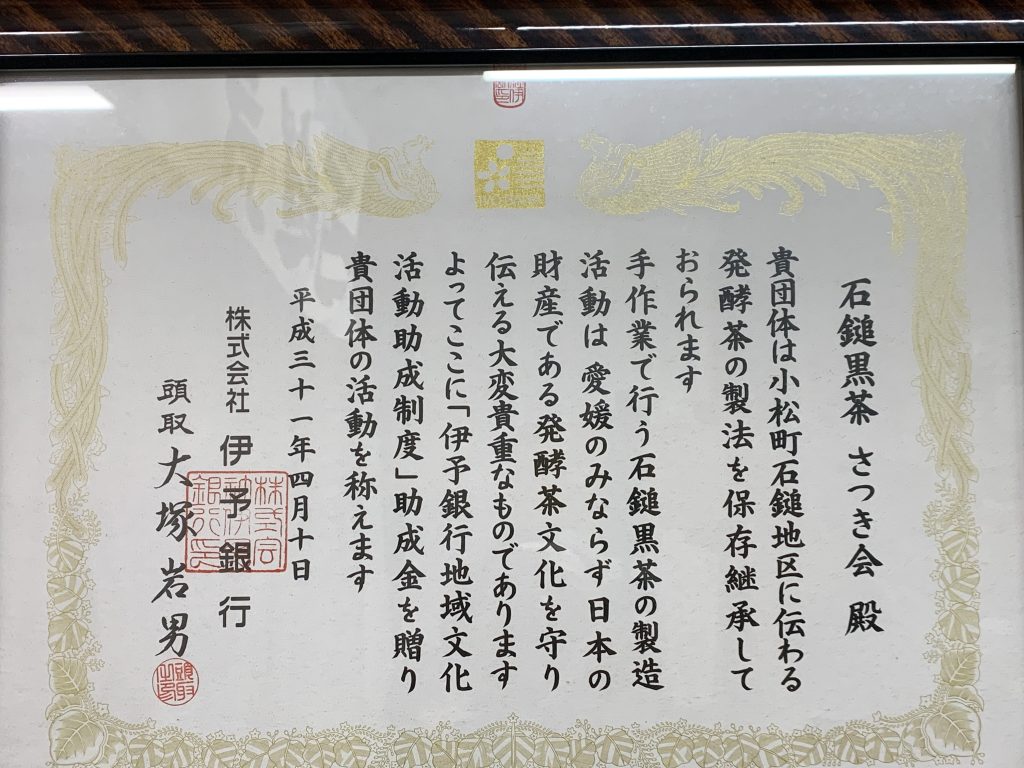 石鎚黒茶 さつき会 殿
貴団体は小松町石鎚地区に伝わる
発酵茶の製法を保存継承して
おられます
手作業で行う石鎚黒茶の製造
活動は愛媛のみならず日本の
財産である発酵茶文化を守り
伝える大変貴重なものであります
よってここに「伊予銀行地域文化
活動助成制度」助成金を贈り
貴団体の活動を称えます
平成三十一年四月十日
株式会社 伊予銀行
頭取 大塚岩男